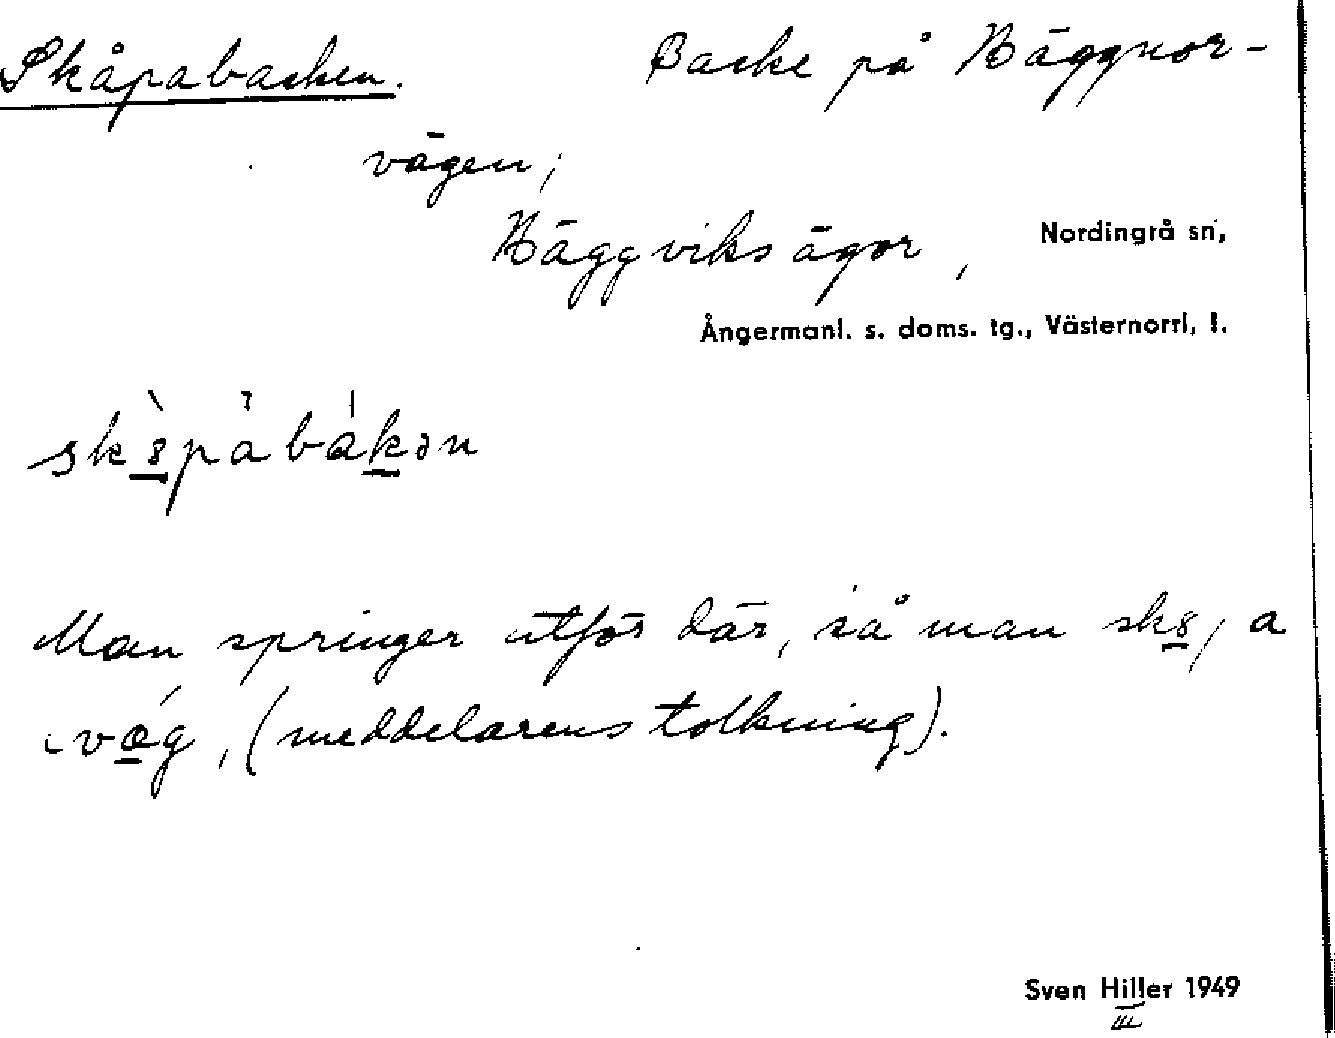 Skåpabacken. Backe på Häggnor-
vägen;
Häggviks ägor, Nordingrå sn,
Ångermanl. s. doms. tg., Västernorrl. l.
Man springer utför där, så man sk8, a
, (meddelarens tolkning).
Sven Hiller 1949
III